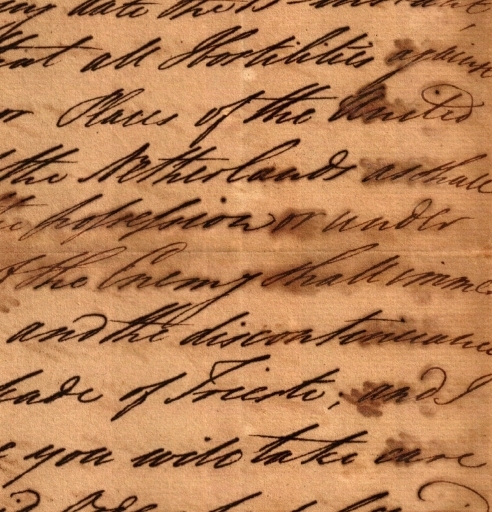 that all Hostilities against
or Places of the United
the Netherlands as shall
the possession or under
the Enemy shall imme
and the discontinuance
kade of Trieste; and I
you will take care